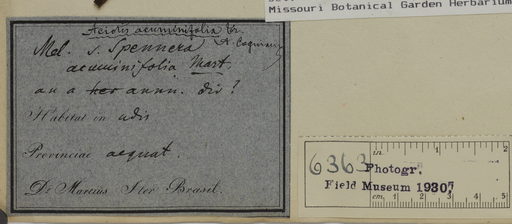 Missouri Botanical Garden Herbarium
Aciotis acuminifolia Tr.
A. Cogniaux
Mel. s. Spennera
acuminifolia Mart.
an a her annn. div?
Habitat in udis
Provinciae aequat.
Dr Martius Iter Brasil.
in. 1 2
6363 Photogr.
Field Museum 1930?
cm. 1 2 3 4 5